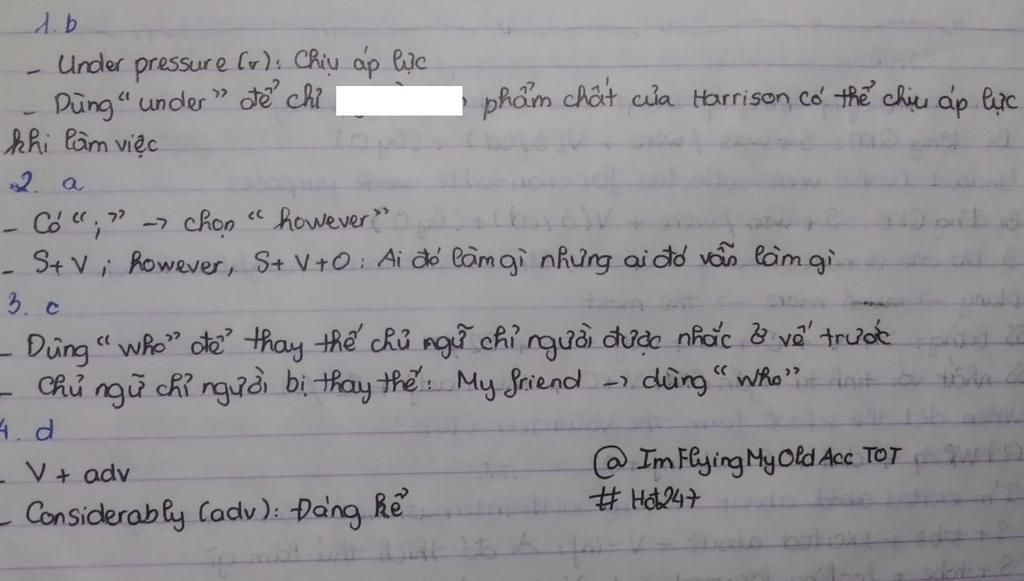 1. b
- Under pressure (v): Chịu áp lực
- Dùng "under" để chỉ phẩm chất của Harrison có thể chịu áp lực
khi làm việc
2. a
- Có ";" -> chọn "however"
- S+V ; however, S+V+O: Ai đó làm gì nhưng ai đó vẫn làm gì
3. c
- Dùng "who" để thay thế chủ ngữ chỉ người được nhắc ở vế trước
- Chủ ngữ chỉ người bị thay thế: My friend -> dùng "who"
4. d
- V + adv
- Considerably (adv): Đáng kể
@ ImFlyingMyOldAcc TOT
# Hoc247